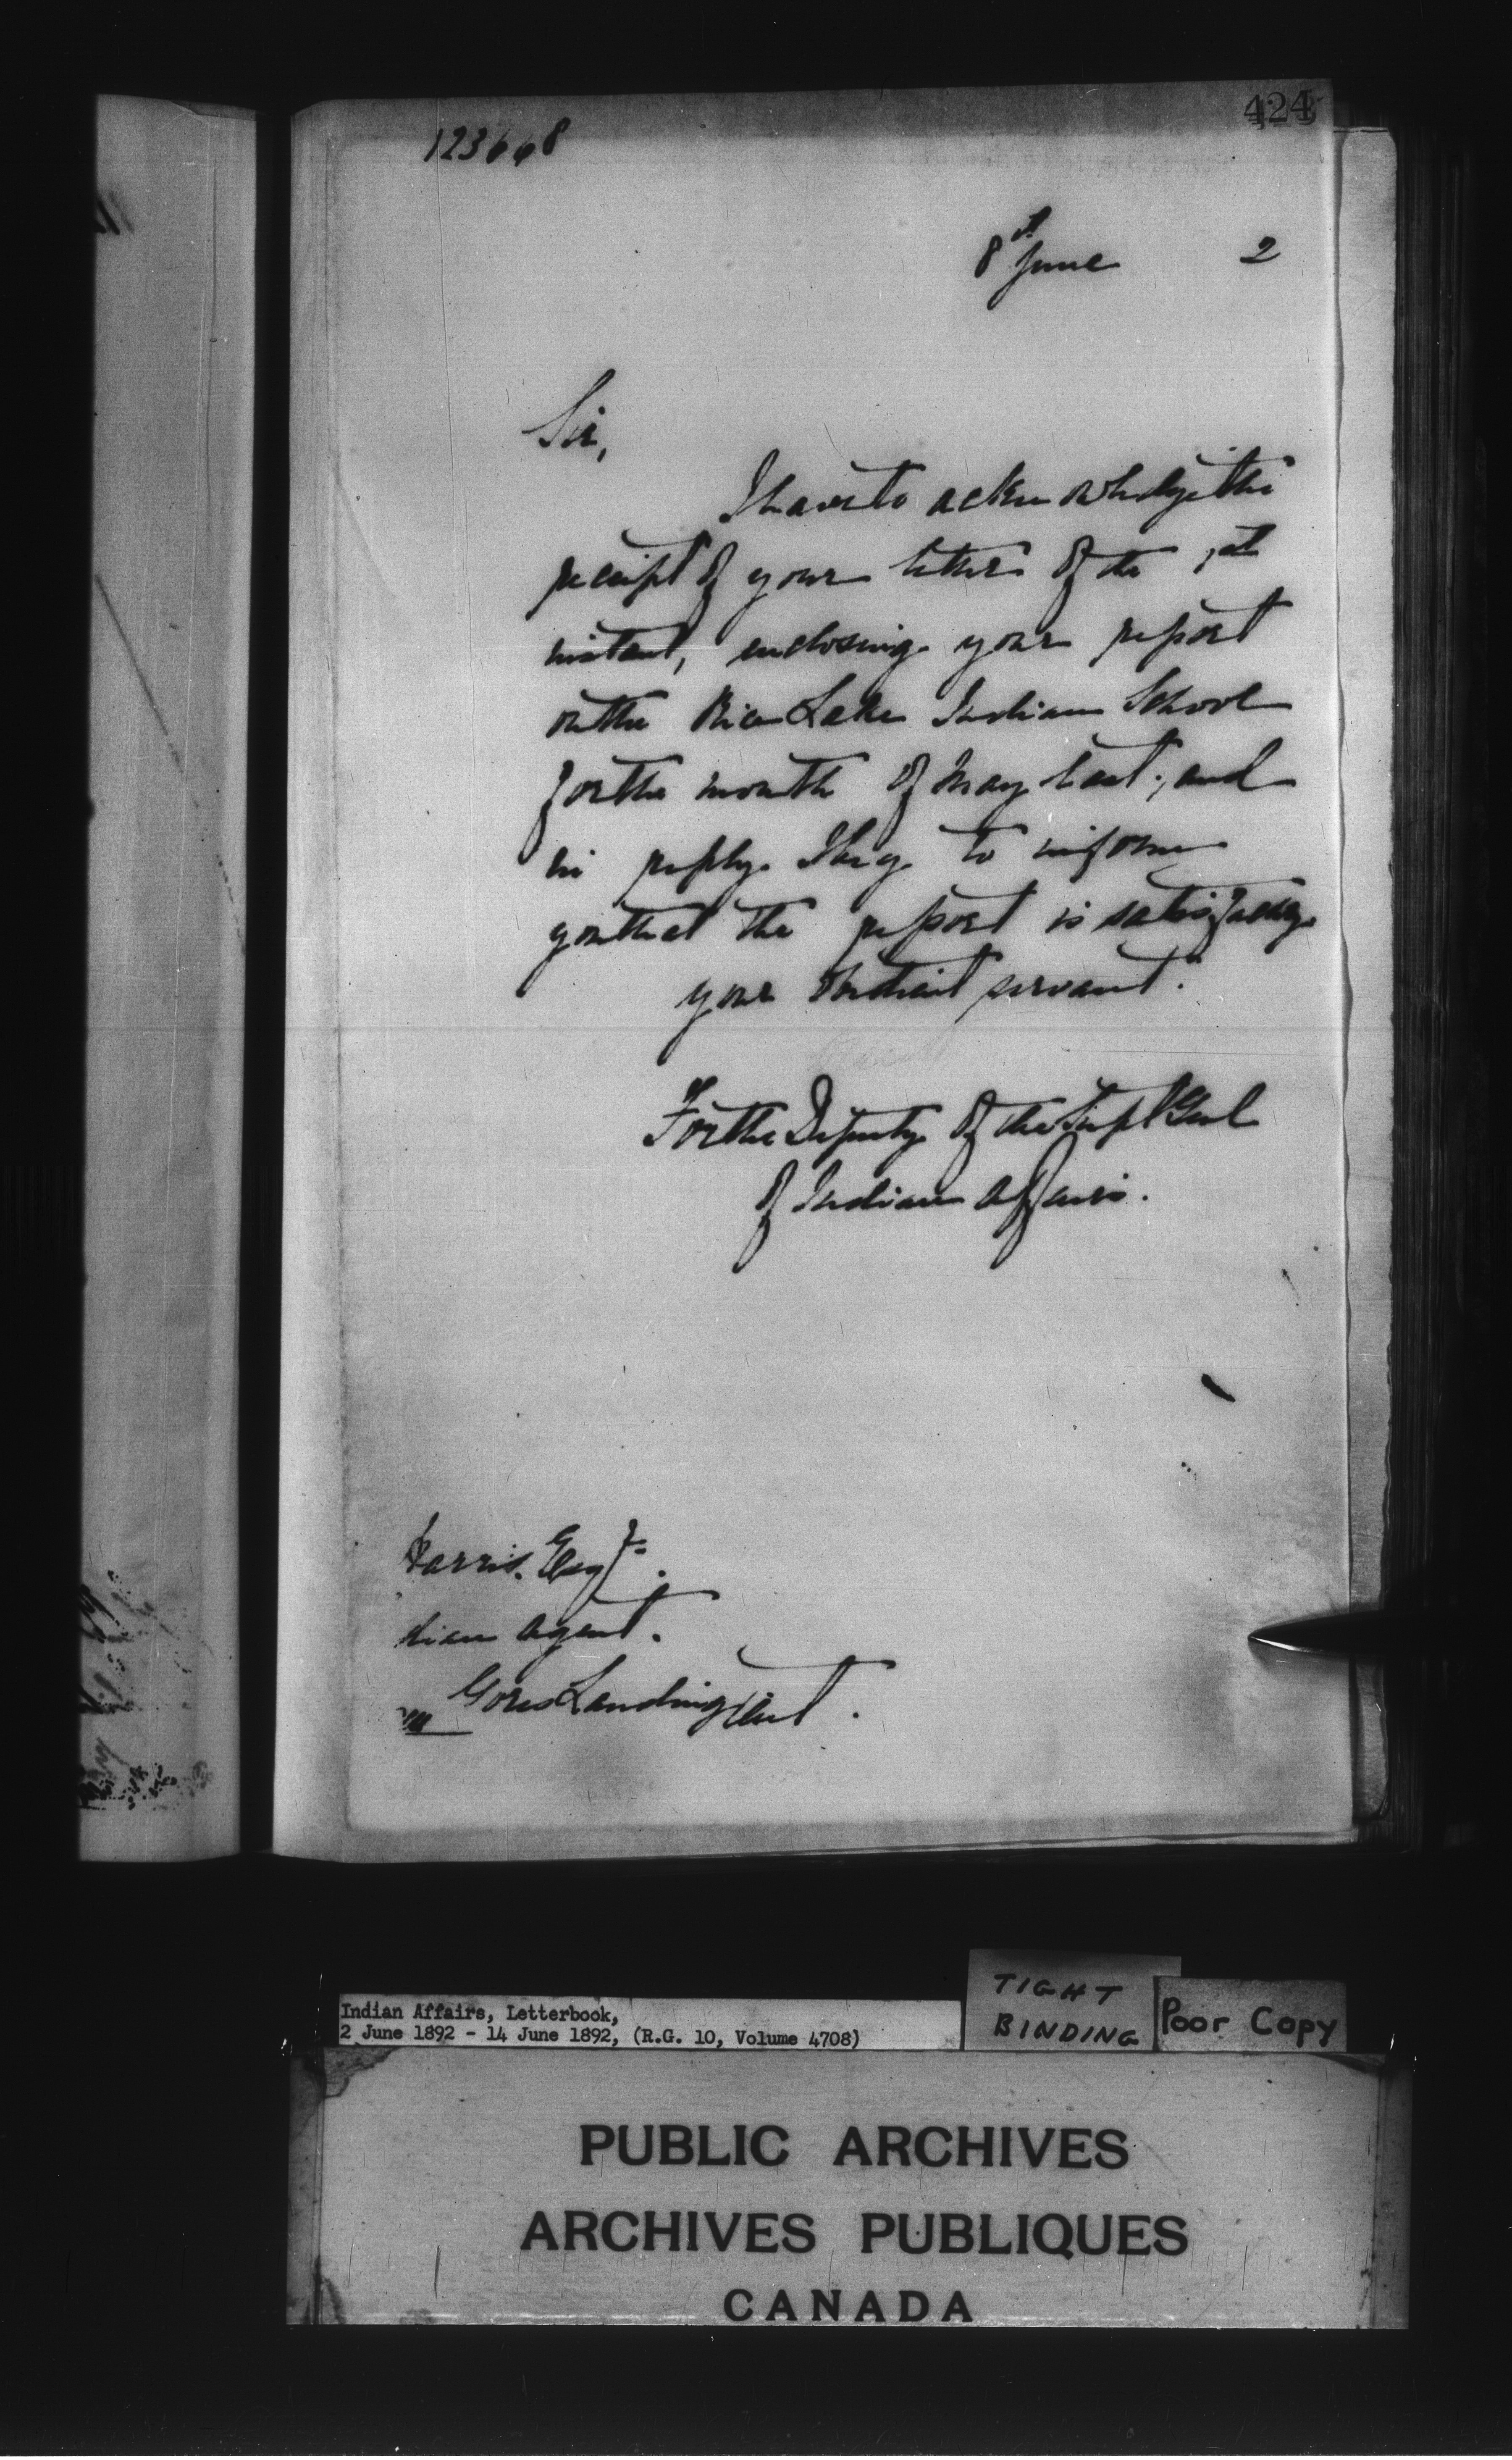 424
123668
8th June 2
Sir,
I have to acknowledge the
receipt of your letter of the 1st
instant, enclosing your report
on the Rice Lake Indian School
for the month of May last, and
in reply I beg to inform
you that the report is satisfactory
your obedient servant.
For the Deputy of the Supt Genl
of Indian Affairs.
Harris. Esqr.
dian Agent.
Gores Landing Ont.
TIGHT
BINDING
Poor Copy
Indian Affairs, Letterbook,
2 June 1892 - 14 June 1892, (R.G. 10, Volume 4708)
PUBLIC ARCHIVES
ARCHIVES PUBLIQUES
CANADA